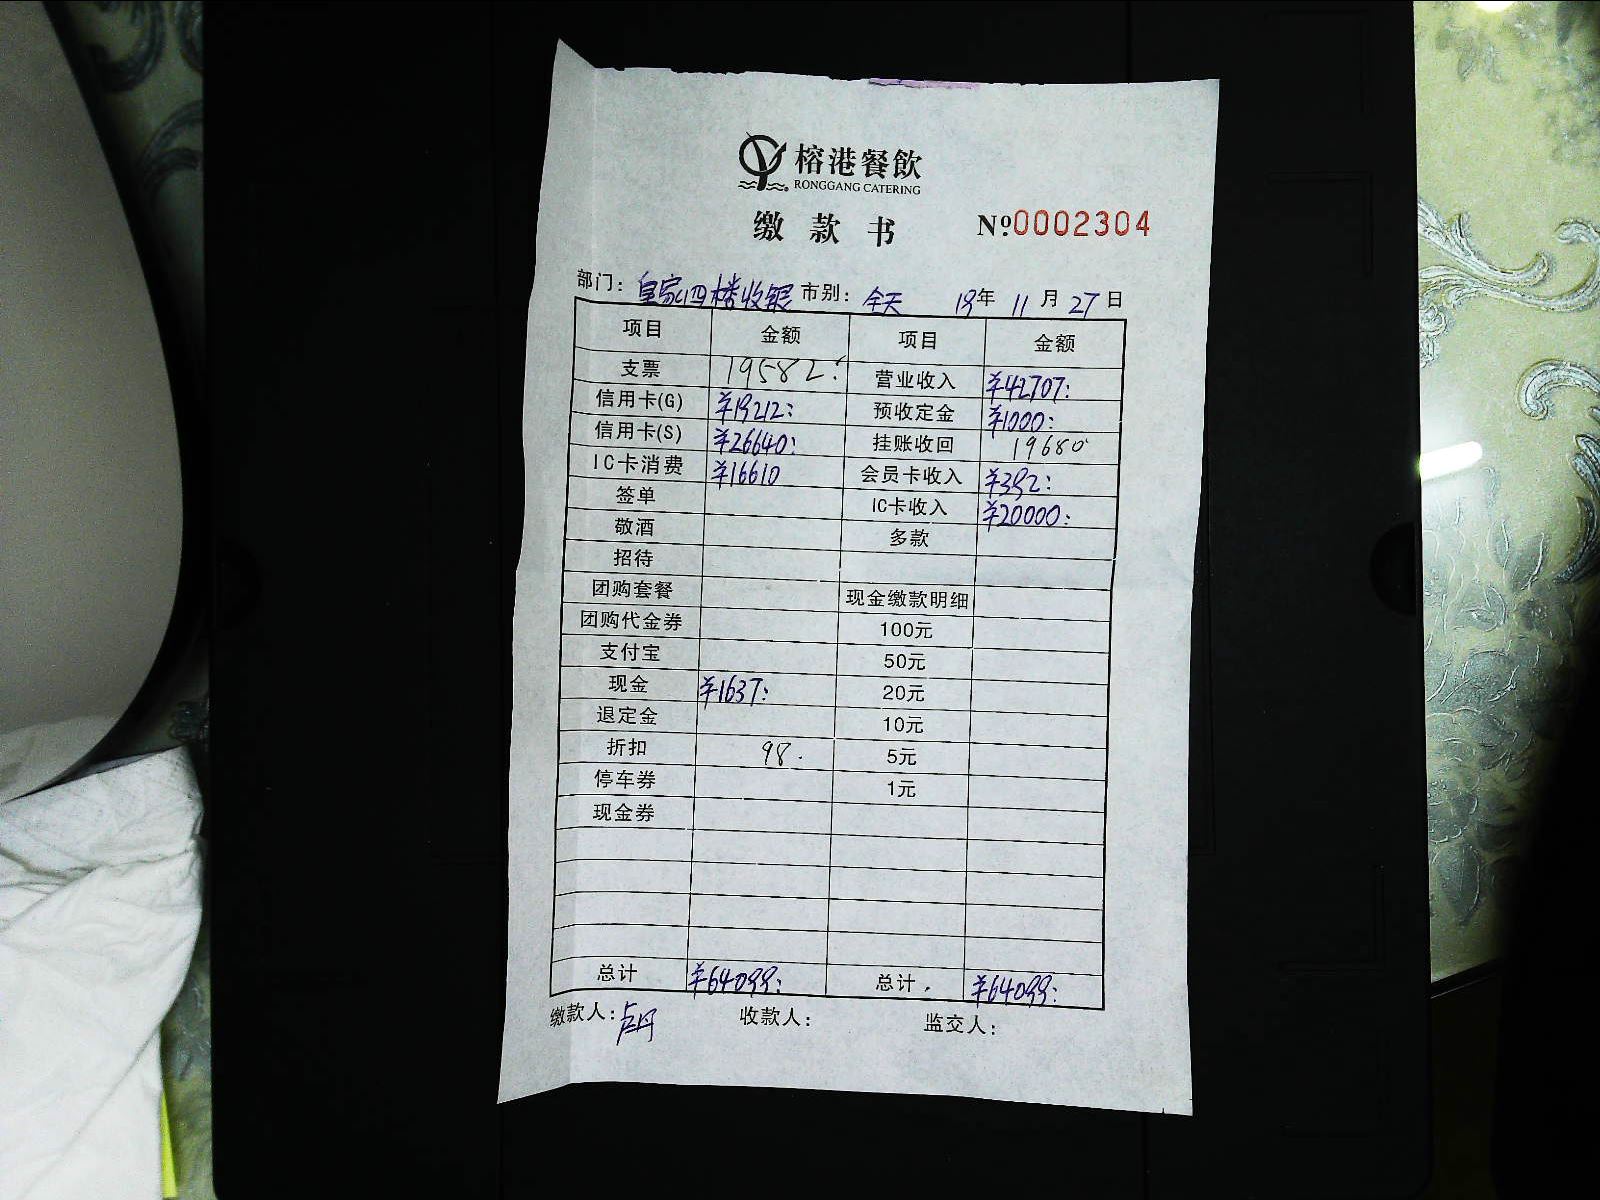 榕港餐飲
RONGGANG CATERING
缴款书 №0002304
部门：皇家四楼收银 市别：全天 19年 11月 27日
项目 金额 项目 金额
支票 19582: 营业收入 ¥42707:
信用卡(G) ¥19212: 预收定金 ¥1000:
信用卡(S) ¥26640: 挂账收回 19680
IC卡消费 ¥16610 会员卡收入 ¥392:
签单 IC卡收入 ¥20000:
敬酒 多款
招待
团购套餐 现金缴款明细
团购代金券 100元
支付宝 50元
现金 ¥1637: 20元
退定金 10元
折扣 98. 5元
停车券 1元
现金券
总计 ¥64099: 总计 ¥64099:
缴款人：卢丹 收款人： 监交人：